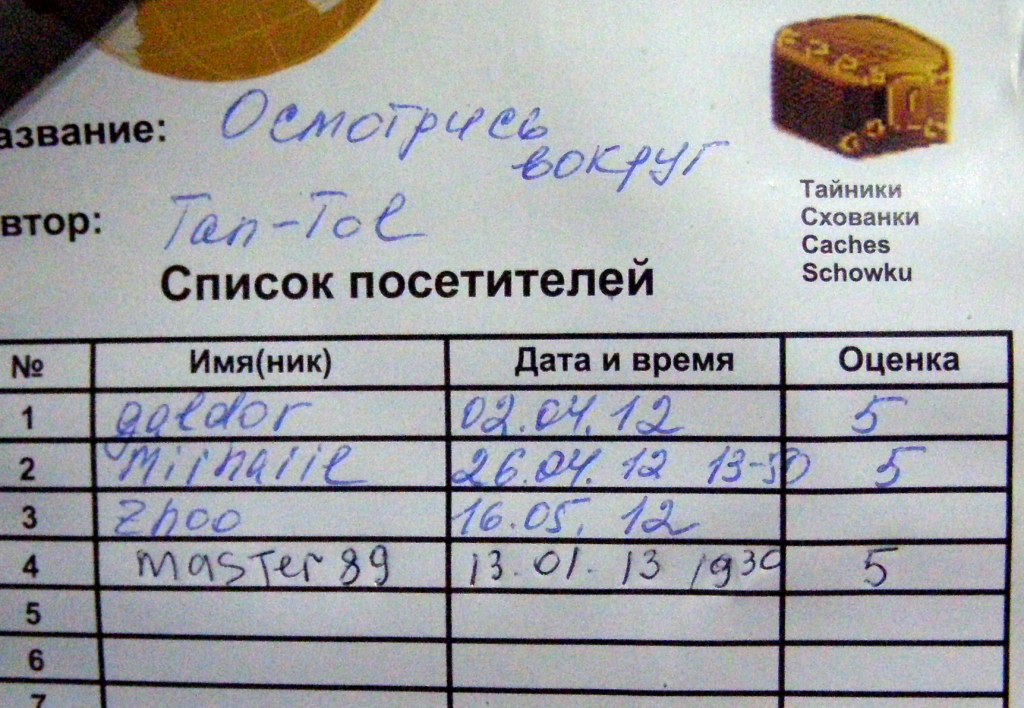 азвание: Осмотрись
вокруг
втор: Tan-Tol
Тайники
Схованки
Caches
Schowku
Список посетителей
№ Имя(ник) Дата и время Оценка
1 galdor 02.04.12 5
2 26.04.12 13-30 5
3 Zhoo 16.05.12
4 master 89 13.01.13 1930 5
5
6
7